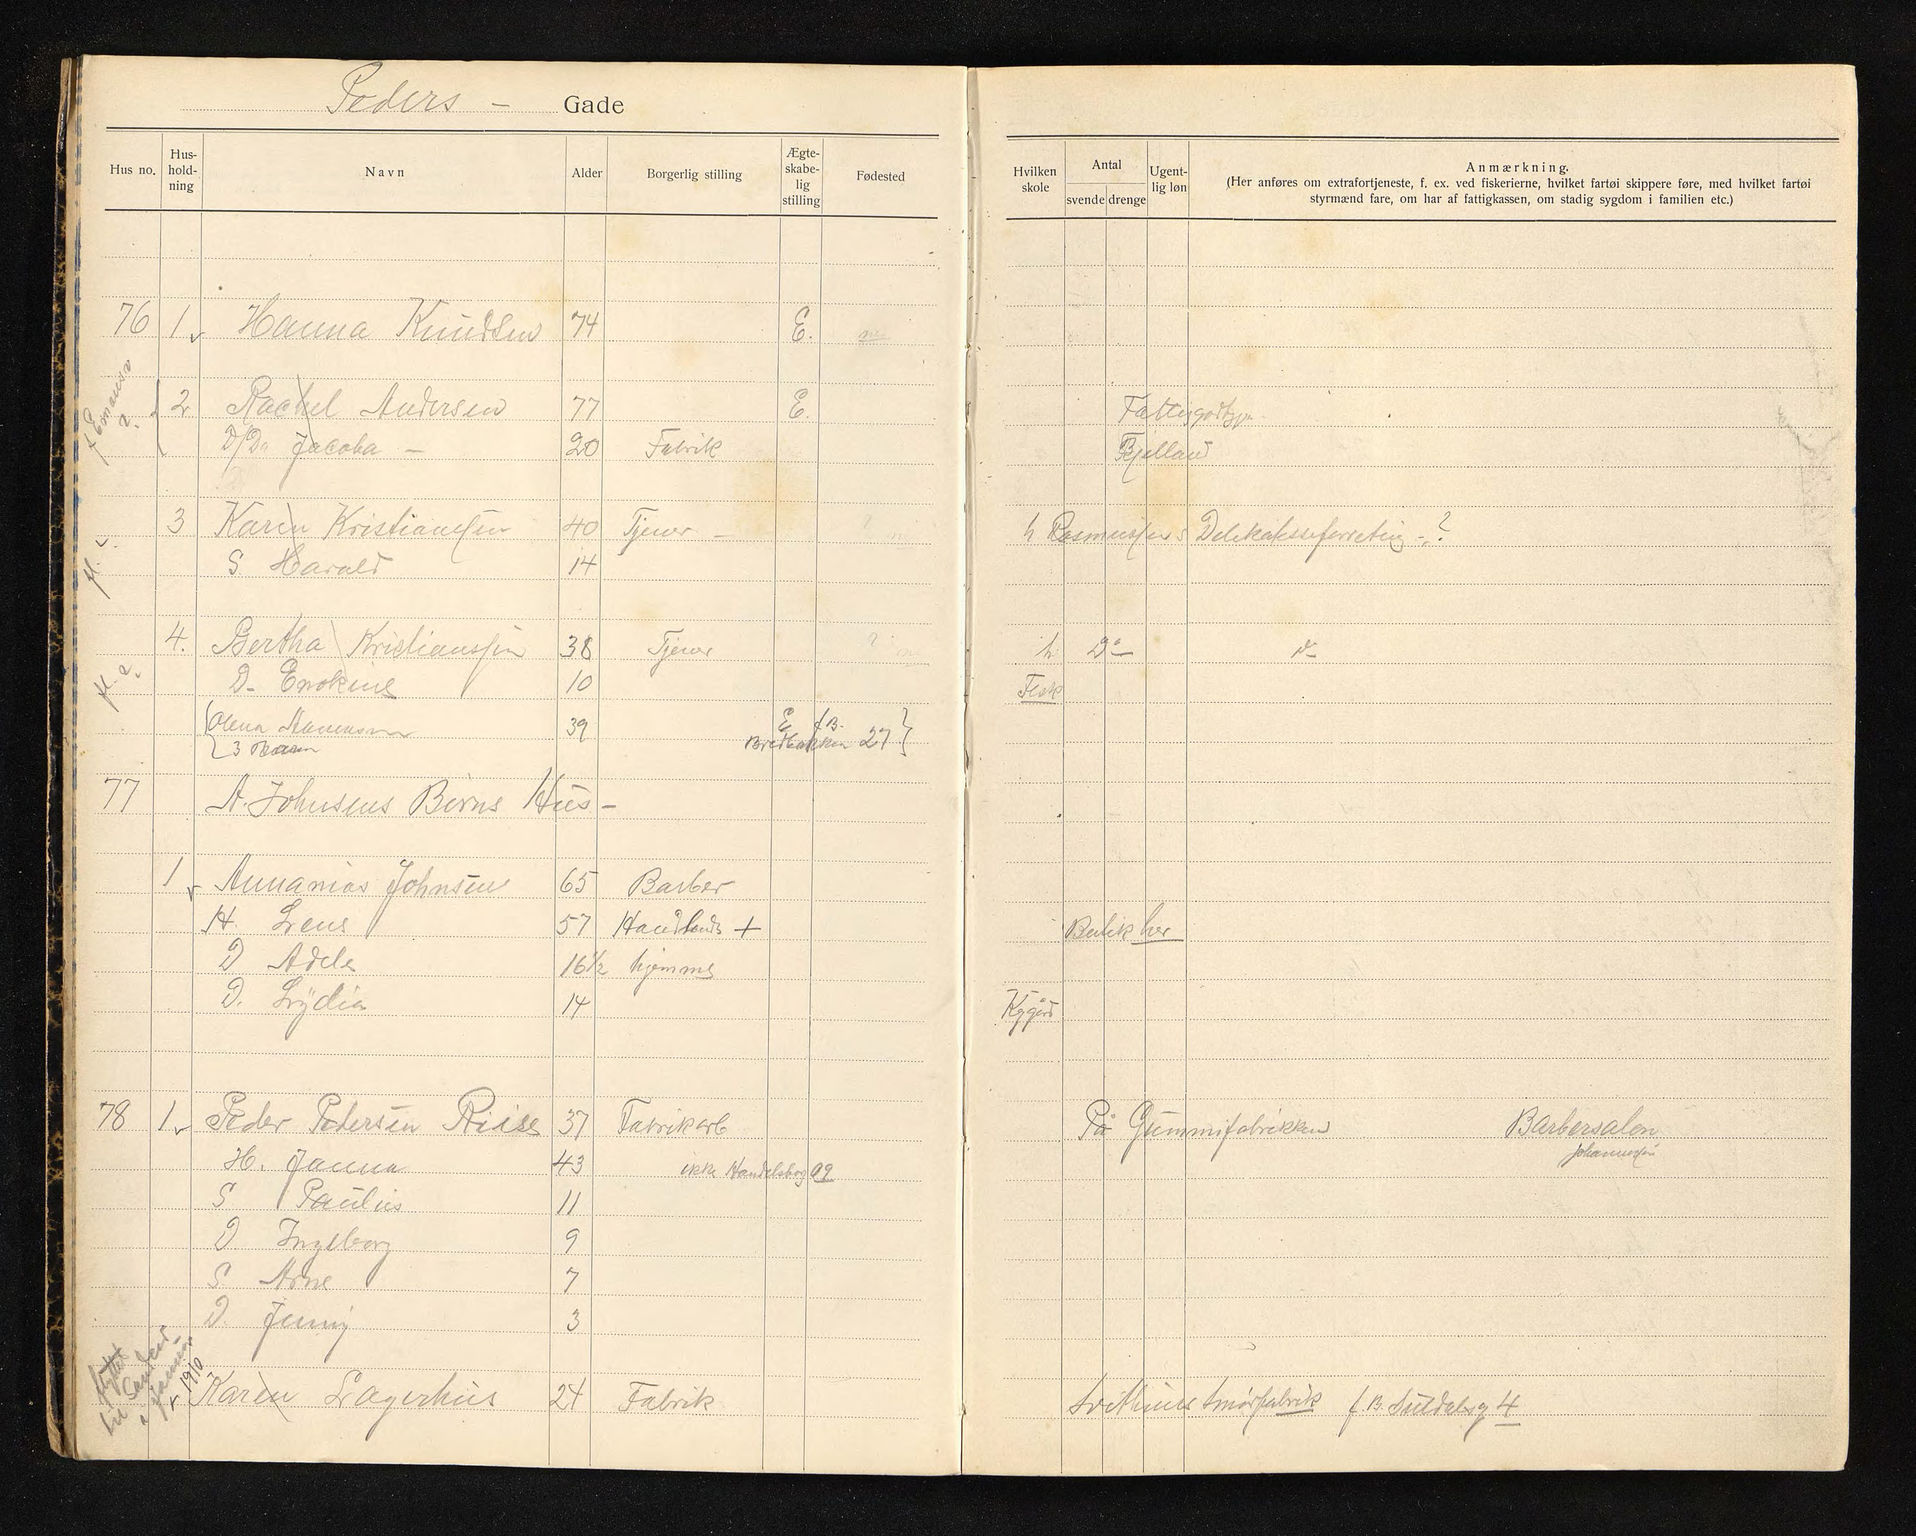 Peders – Gade
Hus no. Hus-holdning Navn Alder Borgerlig stilling Ægte-skabe-lig stilling Fødested
Hvilken skole Antal svende drenge Ugent-lig løn Anmærkning.
(Her anføres om extrafortjeneste, f. ex. ved fiskerierne, hvilket fartøi skippere føre, med hvilket fartøi
styrmænd fare, om har af fattigkassen, om stadig sygdom i familien etc.)
76 1 Hanna Knudsen 74 E.
2 Rachel Andersen 77 E.
D/D. Jacoba – 20 Fabrik Kjelland
3 Karen Kristianssen 40 Tjener – h Rasmussens Delikatesseforretnig - ?
S. Harald 14
4. Bertha Kristianssen 38 Tjener ? h Do
D. Enokine 10
Olena 39 E f B.
3 Bredbakken 27
77 A. Johnsens Børns Hus –
1 Annanias Johnsen 65 Barber
H. Lene 57 Handlende + Butik her
D Adele 16 1/2 hjemme
D. Lydia 14 Kggård
78 1 Peder Pedersen Riise 37 Fabrikarb På Gummifabrikken Barbersalon
H. Janna 43 ikke Handelsbog 09 Johannessen
S Paulus 11
D Ingeborg 9
S. Arne 7
D. Jenny 3
flyttet
til Sandeid
i Januar
1910
Karen Lagerhus 24 Fabrik Svithuns Smørfabrik f. B. Suldalsg 4